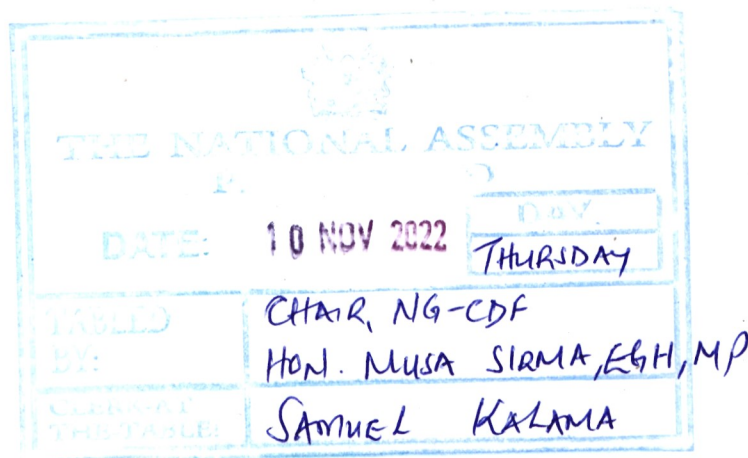 THE NATIONAL ASSEMBLY
DATE: 10 NOV 2022
DAY
THURSDAY
TABLED BY:
CHAIR, NG-CDF
HON. MUSA SIRMA, EGH, MP
CLERK-AT THE-TABLE:
SAMUEL KALAMA